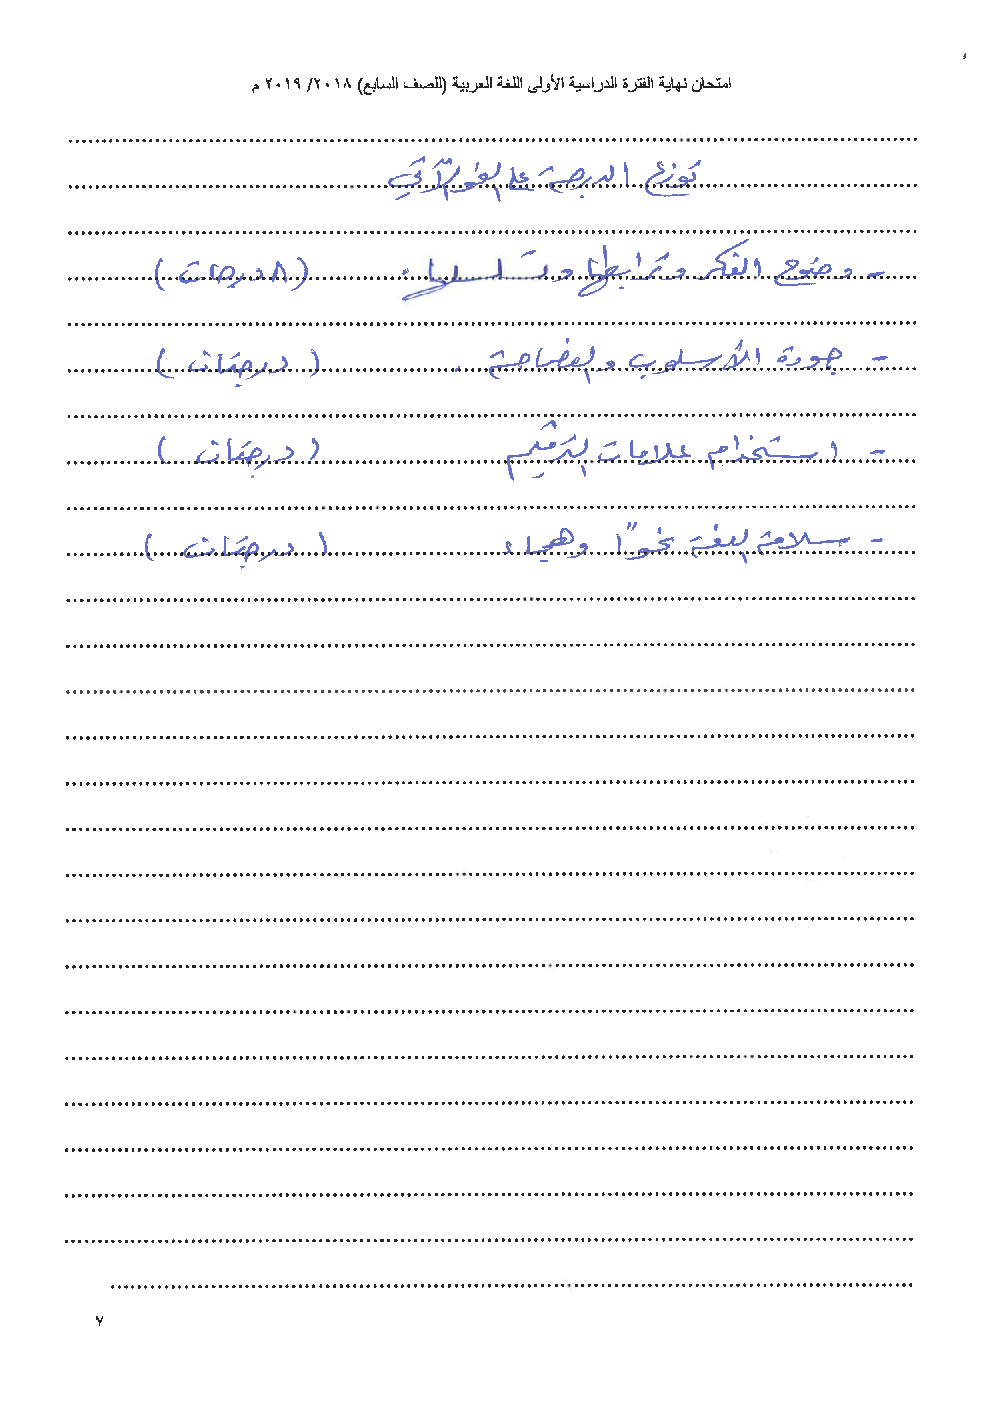 امتحان نهاية الفترة الدراسية الأولى اللغة العربية (للصف السابع) ٢٠١٨/ ٢٠١٩ م
توزع الدرجة على النحو الآتي
- وضوح الفكر وترابطها وتسلسلها . (٨ درجات)
- جودة الأسلوب والفصاحة . (درجتان)
- استخدام علامات الترقيم (درجتان)
- سلامة اللغة نحوًا وهجاء (درجتان)
٧